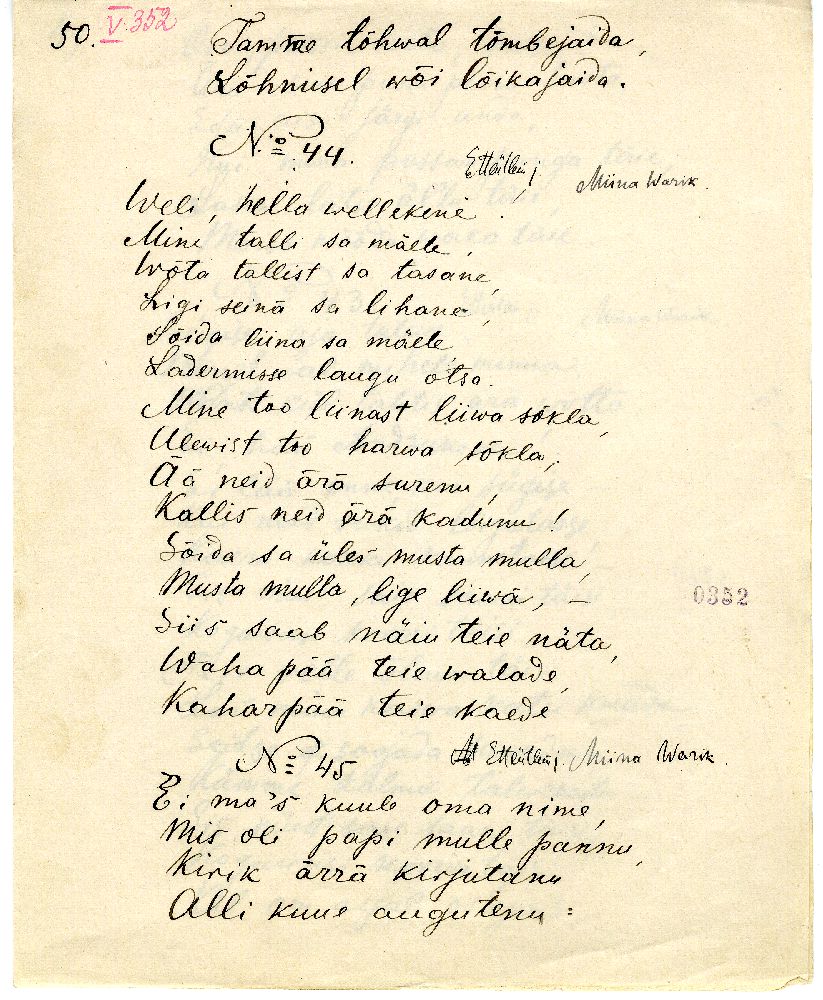 50. V. 352
Tamme tõhwal tõmbejaida,
Lõhnusel wõi lõikajaida.
No 44.
Ettütleij Miina Warik.
Weli, hella wellekene
Mine talli sa mäele,
Wõta tallist sa tasane,
Ligi seinä sa lihane,
Sõida liina sa mäele
Ladermisse laugu otsa.
Mine too liinast liiwa sõkla,
Ulewist too harwa sõkla,
Ää neid ärä surenu,
Kallis neid ärä kadunu!
Sõida sa üles musta mulla,
Musta mulla, lige liiwä, –
Siis saab näiu teie näta,
Waha pää teie walade,
Kahar pää teie kaede
No 45
Ettütleij. Miina Warik.
Ei ma's kuule oma nime,
Mis oli papi mulle pannu,
Kirik ärrä kirjutanu
Alli kuue augutenu:
0352